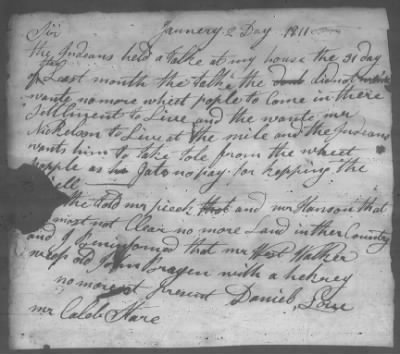 Sir Jannery 2 Day 1811
the Indeans held a talke at my house the 31 day
of Last month the talk the did not
wante no more wheet pople to Come in there
Settlment to Live and the wante mr
Nickelson to Live at the mile and the Indeans
want him to take tole from the wheet
popple as no pay for kepping the
the told mr pieck and mr Hanson that
most not Clear no more Land in ther Country
and I Beninformed that mr Walker
wep old John Bragen with a hekrey
no more at present Daniel
mr Caleb